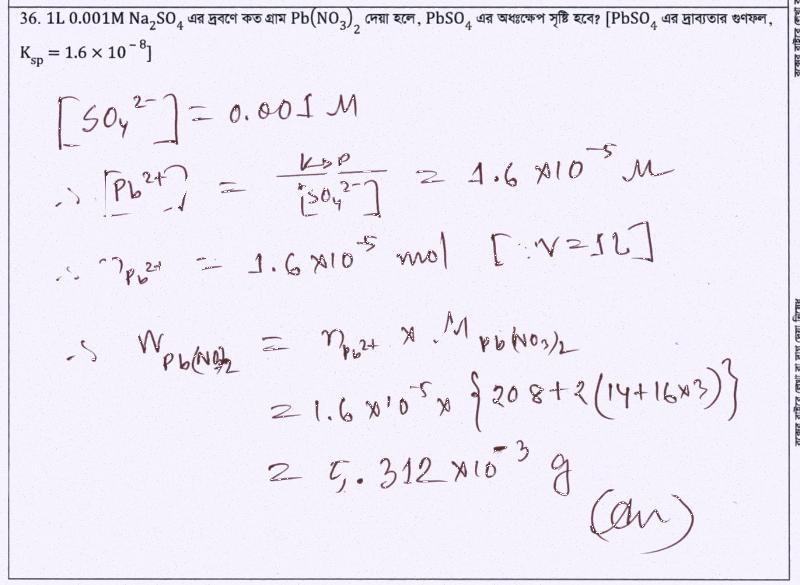 36. 1L 0.001M Na₂SO₄ এর দ্রবণে কত গ্রাম Pb(NO₃)₂ দেয়া হলে, PbSO₄ এর অধঃক্ষেপ সৃষ্টি হবে? [PbSO₄ এর দ্রাব্যতার গুণফল,
K_sp = 1.6 × 10⁻⁸]
[SO₄²⁻] = 0.001 M
∴ [Pb²⁺] = Ksp / [SO₄²⁻] = 1.6 × 10⁻⁵ M
∴ n_Pb²⁺ = 1.6 × 10⁻⁵ mol [∵ V = 1L]
∴ W_Pb(NO₃)₂ = n_Pb²⁺ × M_Pb(NO₃)₂
= 1.6 × 10⁻⁵ × {208 + 2(14 + 16 × 3)}
= 5.312 × 10⁻³ g
(Ans)